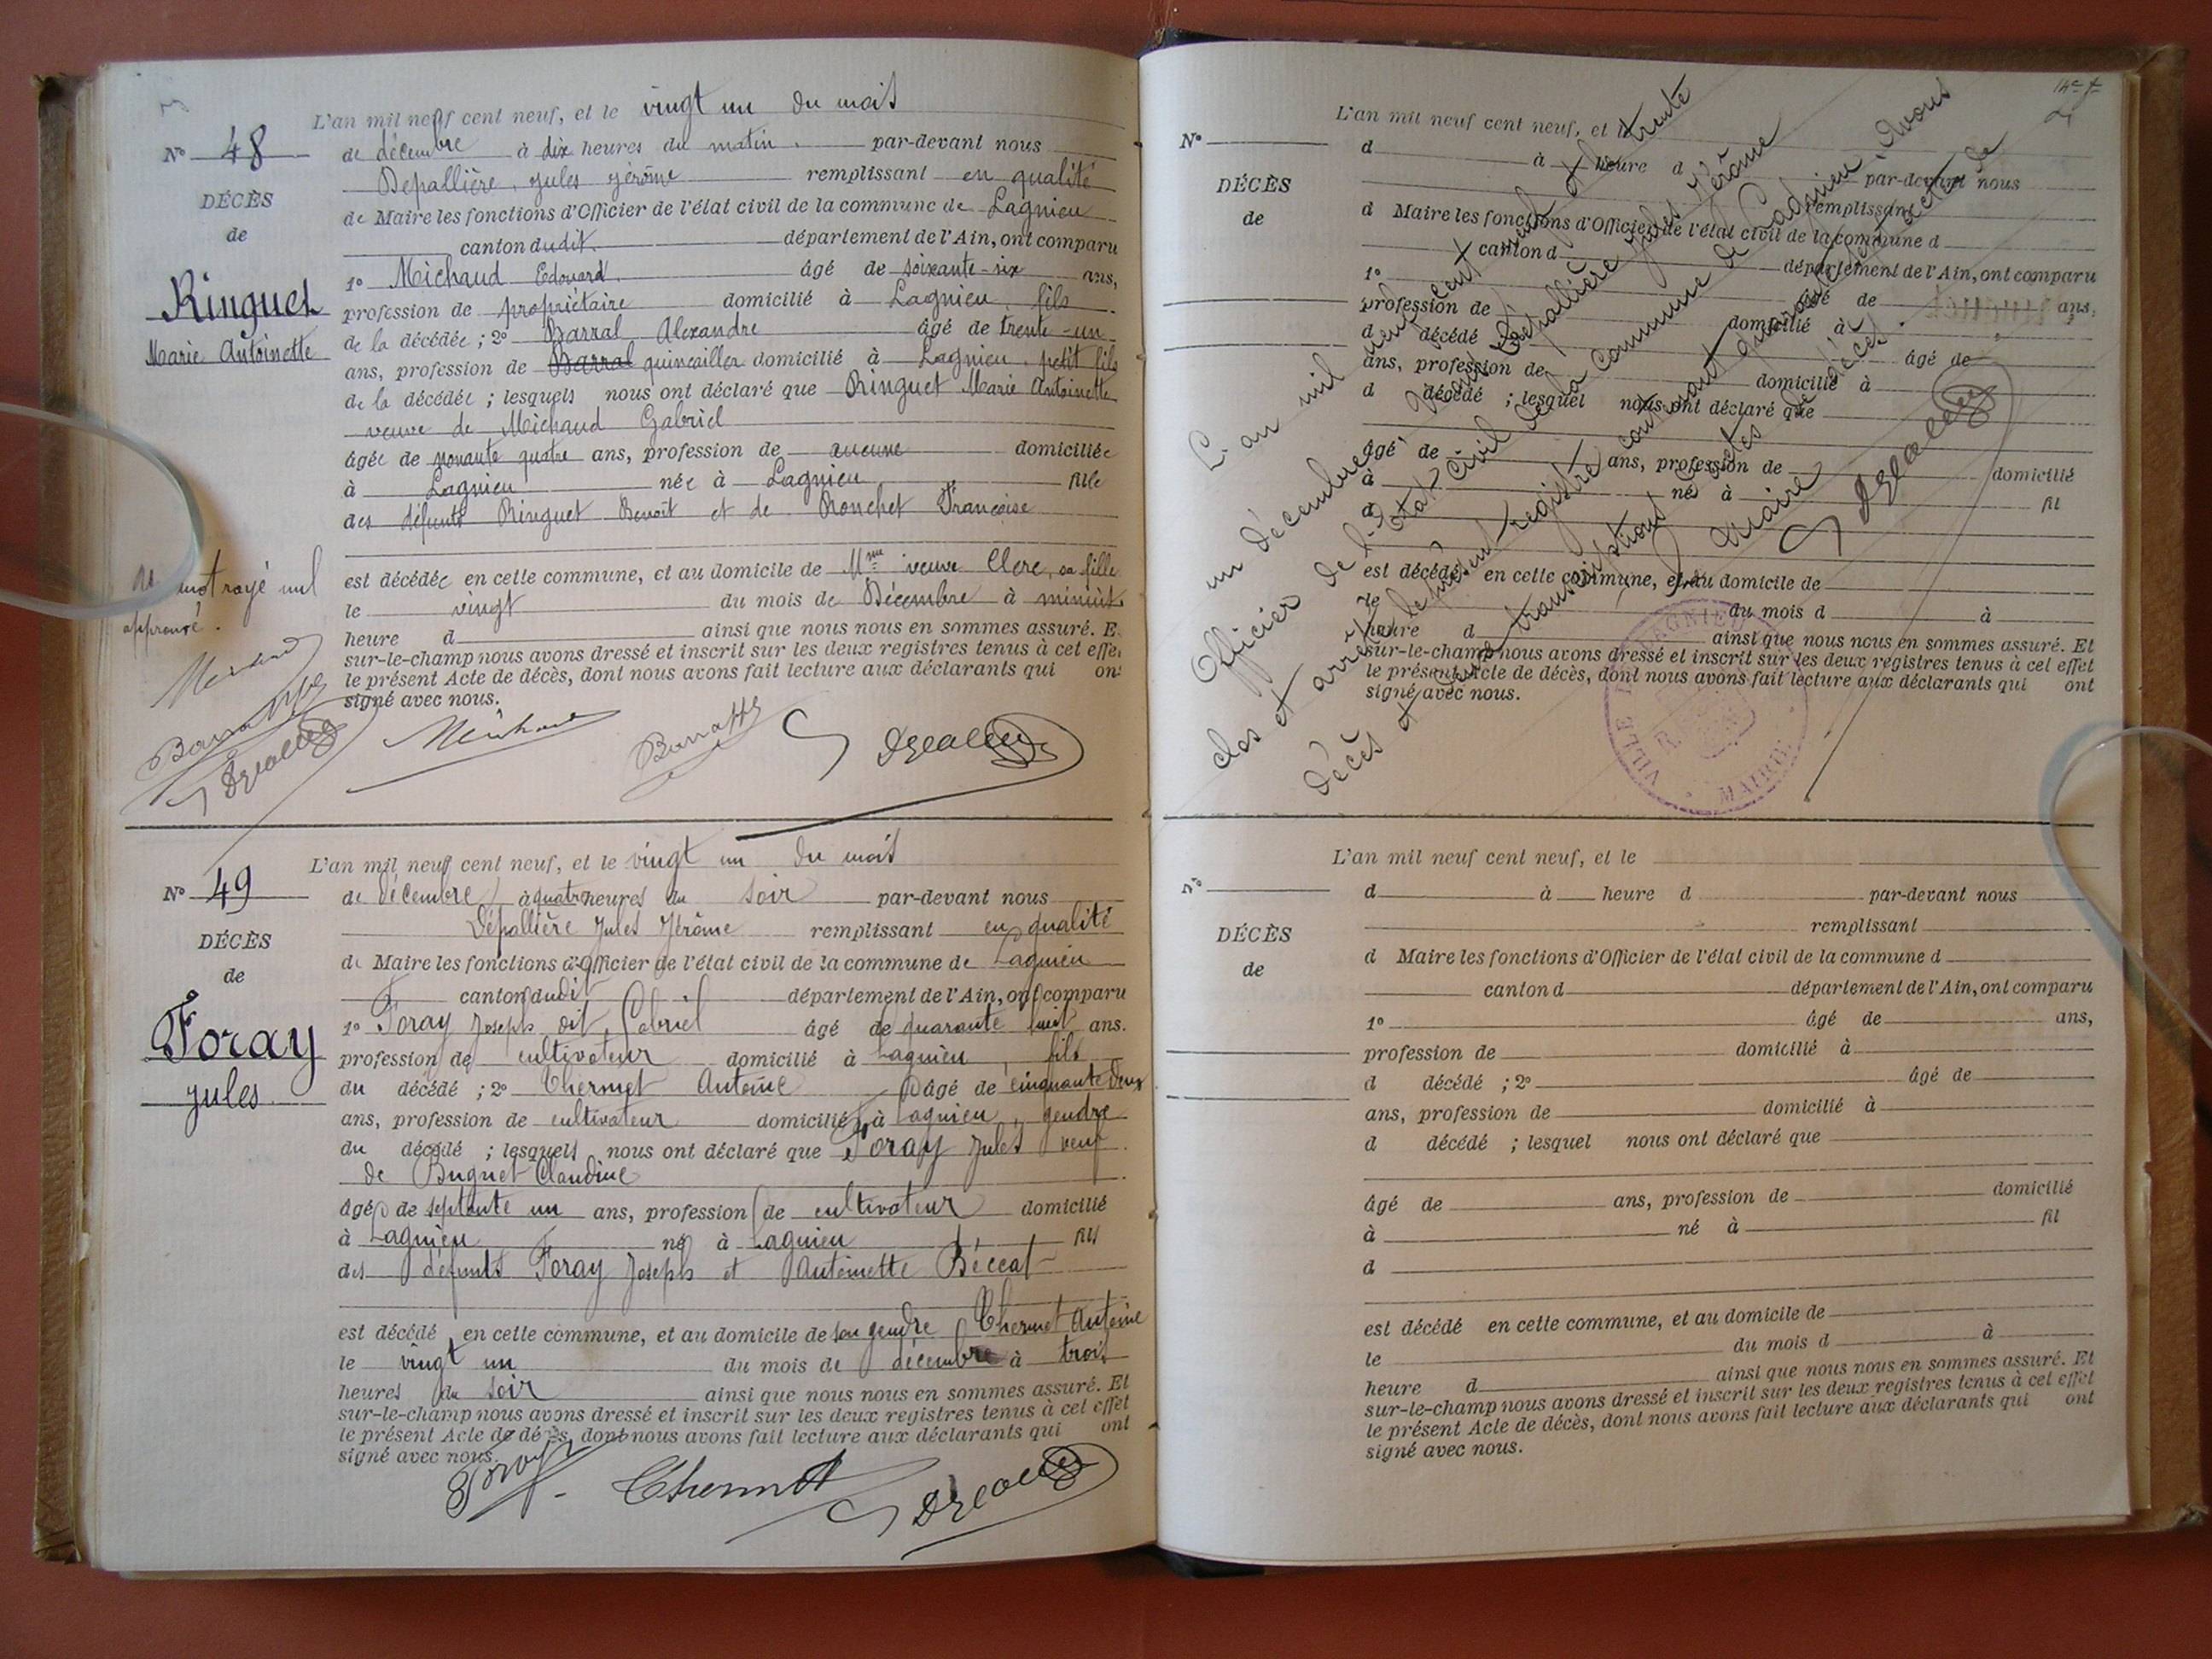 L'an mil neuf cent neuf, et le vingt un du mois
N° 48
de décembre à dix heures du matin. par-devant nous
Depallière, Jules Jérôme remplissant en qualité
DÉCÈS
de Maire les fonctions d'Officier de l'état civil de la commune de Lagnieu
de
canton dudit. département de l'Ain, ont comparu
1° Michaud Edouard. âgé de soixante-six ans,
Ringuet
profession de propriétaire domicilié à Lagnieu, fils
Marie Antoinette
de la décédée ; 2° Barral Alexandre âgé de trente-un
ans, profession de Barral quincailler domicilié à Lagnieu, petit fils
de la décédée ; lesquels nous ont déclaré que Ringuet Marie Antoinette
veuve de Michaud Gabriel
âgée de nonante quatre ans, profession de aucune domiciliée
à Lagnieu née à Lagnieu fille
des défunts Ringuet Benoît et de Ronchet Françoise
est décédée en cette commune, et au domicile de Mme veuve Clerc, sa fille
mot rayé nul
approuvé.
le vingt du mois de Décembre à minuit
heure d ainsi que nous nous en sommes assuré. E
sur-le-champ nous avons dressé et inscrit sur les deux registres tenus à cet effe
le présent Acte de décès, dont nous avons fait lecture aux déclarants qui on
signé avec nous.
L'an mil neuf cent neuf, et le vingt un du mois
N° 49
de décembre à quatre heures du soir par-devant nous
Dépallière Jules Jérôme remplissant en qualité
DÉCÈS
de Maire les fonctions d'Officier de l'état civil de la commune de Lagnieu
de
canton dudit département de l'Ain, ont comparu
1° Foray Joseph dit Gabriel âgé de quarante huit ans.
Foray
profession de cultivateur domicilié à Lagnieu, fils
Jules
du décédé ; 2° Thermet Antoine âgé de cinquante deux
ans, profession de cultivateur domicilié à Lagnieu, gendre
du décédé ; lesquels nous ont déclaré que Foray Jules veuf
de Buguet Claudine
âgé de septante un ans, profession de cultivateur domicilié
à Lagnieu né à Lagnieu fils
des défunts Foray Joseph et Antoinette Béccat
est décédé en cette commune, et au domicile de son gendre Thermet Antoine
le vingt un du mois de décembre à trois
heures du soir ainsi que nous nous en sommes assuré. Et
sur-le-champ nous avons dressé et inscrit sur les deux registres tenus à cet effet
le présent Acte de décès, dont nous avons fait lecture aux déclarants qui ont
signé avec nous.
Foray Thermet
L'an mil neuf cent neuf, et le
N°
d à heure d par-devant nous
remplissant
DÉCÈS
d Maire les fonctions d'Officier de l'état civil de la commune d
de
canton d département de l'Ain, ont comparu
1° âgé de ans,
profession de domicilié à
d décédé ; 2° âgé de
ans, profession de domicilié à
d décédé ; lesquel nous ont déclaré que
âgé de ans, profession de domicilié
à né à fil
d
est décédé en cette commune, et au domicile de
le du mois d à
heure d ainsi que nous nous en sommes assuré. Et
sur-le-champ nous avons dressé et inscrit sur les deux registres tenus à cet effet
le présent Acte de décès, dont nous avons fait lecture aux déclarants qui ont
signé avec nous.
L'an mil neuf cent neuf et le trente
un décembre Nous Depallière Jules Jérôme
Officier de l'Etat-Civil de la commune de Lagnieu, Avons
clos et arrêté le présent registre contenant quarante neuf actes de
décès et transcriptions d'actes de décès.
Le Maire
VILLE DE LAGNIEU
MAIRIE
L'an mil neuf cent neuf, et le
N°
d à heure d par-devant nous
remplissant
DÉCÈS
d Maire les fonctions d'Officier de l'état civil de la commune d
de
canton d département de l'Ain, ont comparu
1° âgé de ans,
profession de domicilié à
d décédé ; 2° âgé de
ans, profession de domicilié à
d décédé ; lesquel nous ont déclaré que
âgé de ans, profession de domicilié
à né à fil
d
est décédé en cette commune, et au domicile de
le du mois d à
heure d ainsi que nous nous en sommes assuré. Et
sur-le-champ nous avons dressé et inscrit sur les deux registres tenus à cet effet
le présent Acte de décès, dont nous avons fait lecture aux déclarants qui ont
signé avec nous.